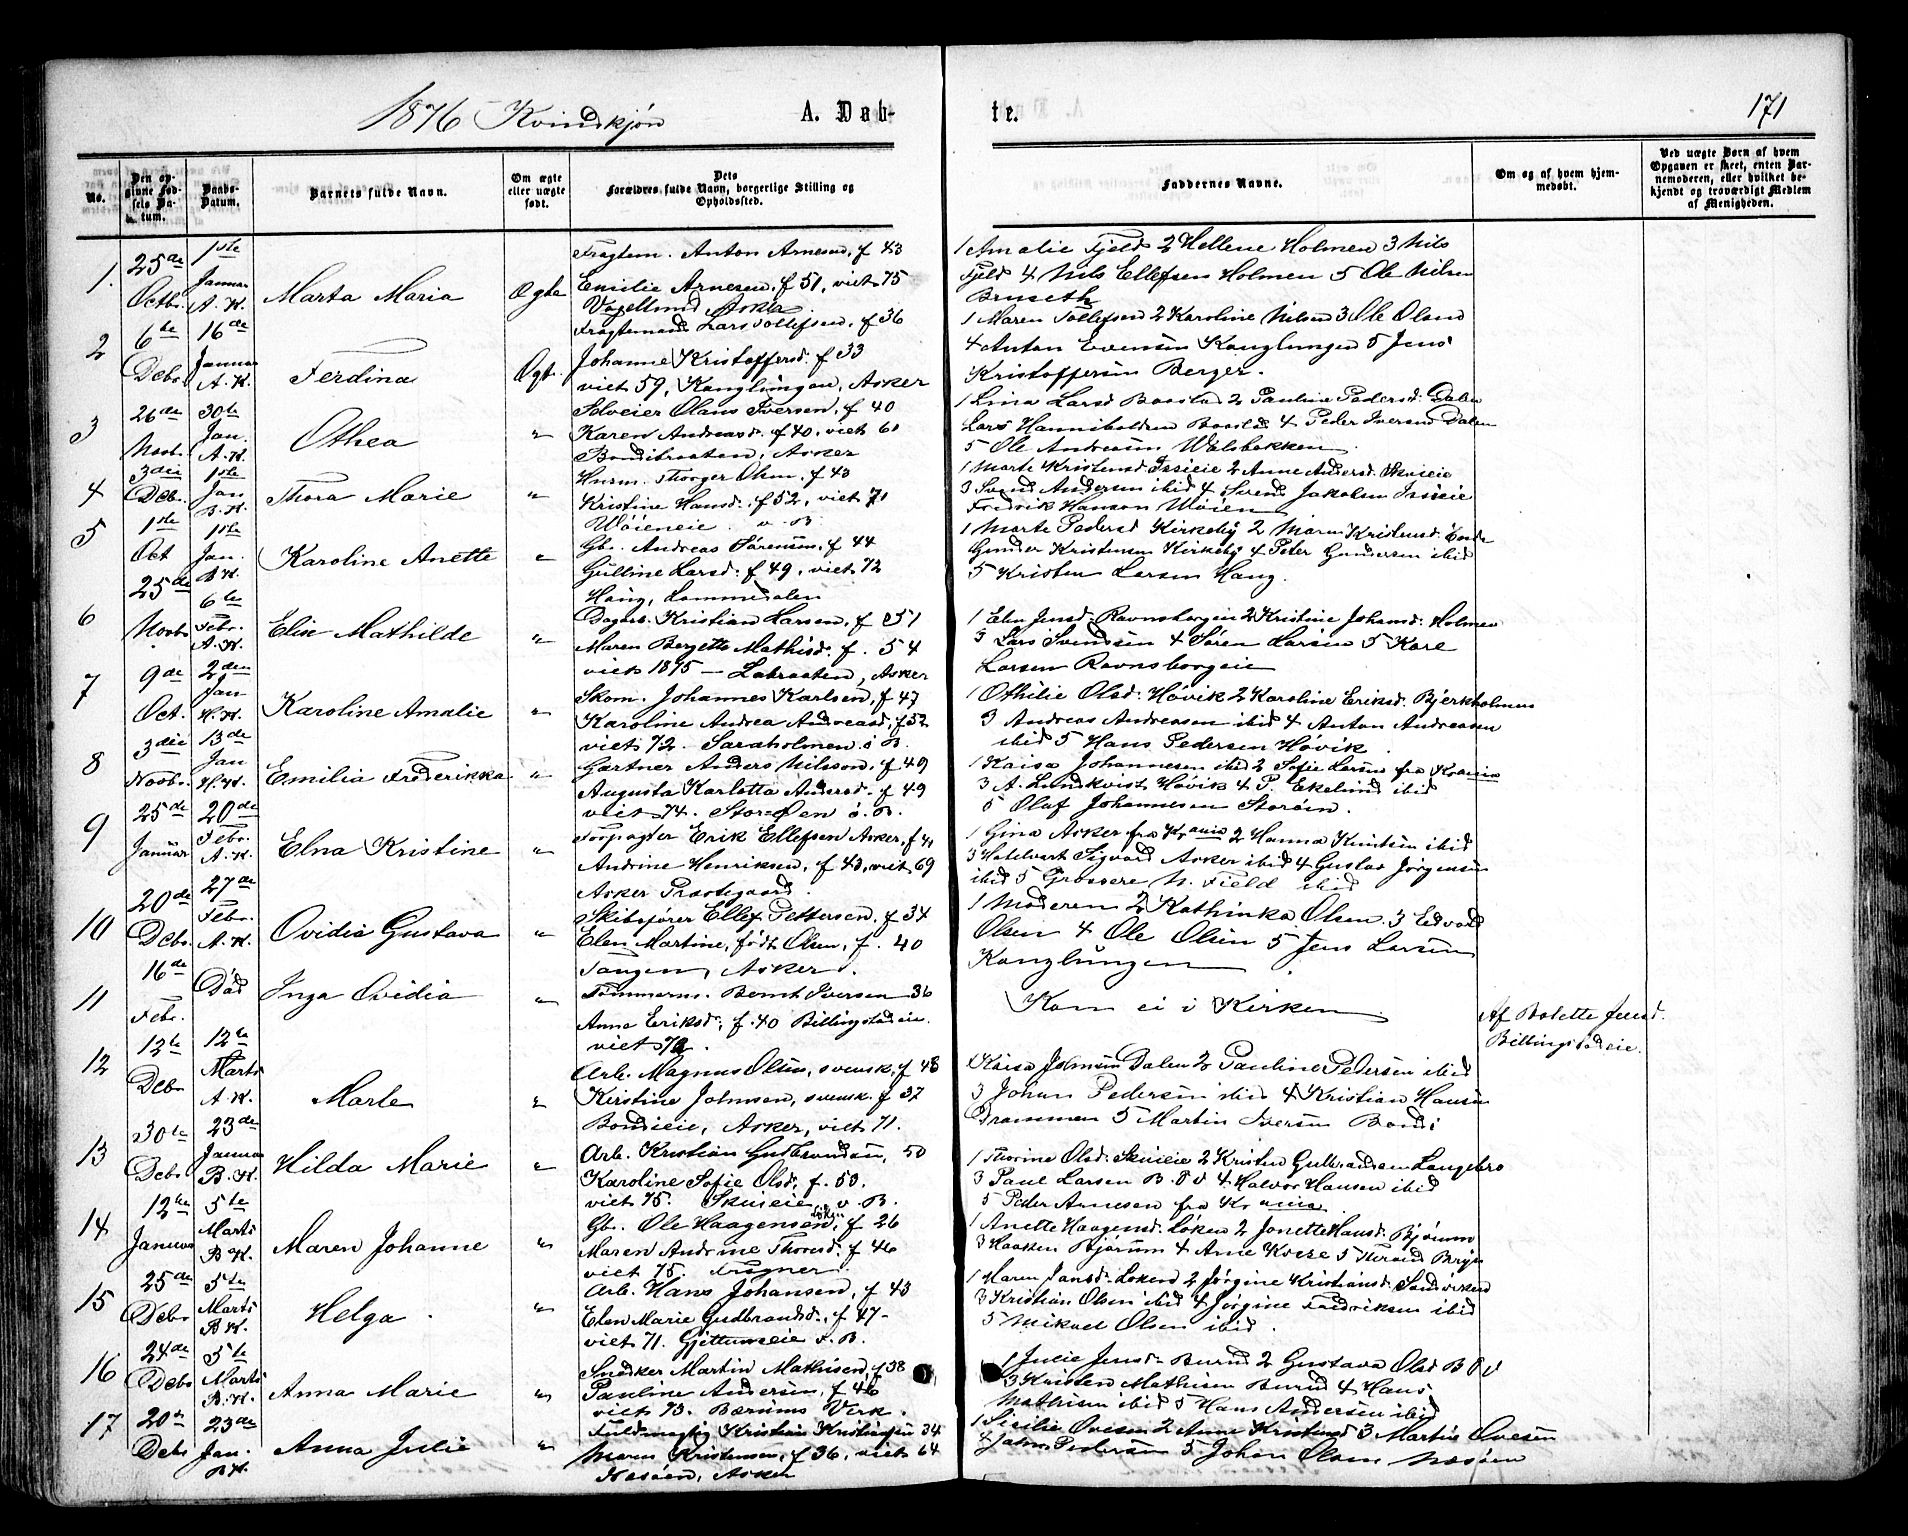 1876 Kvindkjøn A. Døb-
te. 171
No.
Den opgivne Fødsels Datum.
Daabs-Datum.
Barnets fulde Navn.
Om ægte eller uægte født.
Dets Forældres fulde Navn, borgerlige Stilling og Opholdssted.
Faddernes Navne.
Om og af hvem hjemmedøbt.
Ved uægte Børn af hvem Opgaven er skeet, enten Barnemoderen, eller hvilket bekjendt og troværdigt Medlem af Menigheden.
1. 25de Octbr. 1ste Januar A.K. Marta Maria Ægte
Fragtem. Anton Arnesen, f 43
Emilie Arnesen, f 51, viet 75
Asker
1 Amalie Fjeld 2 Hellene Holmen 3 Nils
Fjeld 4 Nils Ellefsen Holmen 5 Ole Nilsen
Bruseth
2 6te Debr 16de Januar A.K. Ferdina Ægt.
Fragtemand Lars Tollefsen, f 36
Johanne Kristoffersd. f 33
viet 59, Konglungen, Asker
1 Maren Tollefsen 2 Karoline Nilsen 3 Ole Olsen
4 Anton Evensen Konglungen 5 Jens
Kristoffersen Berger.
3 26de Novbr. 30te Jan. A.K. Othea "
Selveier Olaus Iversen, f 40
Karen Andreasd. f 40, viet 61
Asker
1 Lina Larsd 2 Pauline Pedersd. Dalen
Lars Hannibalsen 4 Peder Iversen Dalen
5 Ole Andreasen
4 3die Deb. 1ste Jan B.K. Thora Marie "
Husm. Thorger Olsen, f 43
Kristine Hansd. f 52, viet 71
Wøieneie v. B.
1 Marte Kristensd 2 Anne Andersd. Skuieie
3 Svend Andersen ibid 4 Svend Jakobsen
Fredrik Hansen Wøien
5 1ste Oct 1ste Jan. B.K. Karoline Anette "
Gbr. Andreas Sørensen, f 44
Gulline Larsd: f 49, viet 72
Haug, Lommedalen
1 Marte Pedersd Kirkeby 2 Maren Kristensd.
Gunder Kristensen Kirkeby 4 Peter Gundersen ibid
5 Kristen Larsen Haug.
6 25de Novbr 6te Febr. A.K. Elise Mathilde "
Dagarb. Kristian Larsen, f 51
Maren Bergette Mathisd. f. 54
viet 1875 — Asker
1 Elen Jensd. Ravnsborgeie 2 Kristine Johansd. Holmen
3 Lars Svendsen 4 Søren Larsen 5 Karl
Larsen Ravnsborgeie
7 9de Oct. 2den Jan H.K. Karoline Amalie "
Skom. Johannes Karlsen, f 47
Karoline Andrea Andreasd. f 52
viet 72. Saraholmen ø B.
1 Othilie Olsd. Høvik 2 Karoline Eriksd. Bjerkholmen
3 Andreas Andreasen ibid 4 Anton Andreasen
ibid 5 Hans Pedersen Høvik.
8 3die Novbr. 13de Jan H.K. Emilia Frederikka "
Gartner Anders Nilsson, f 49
Augusta Karlotta Andersd. f 49
viet 74. Storøen ø. B.
1 Kaisa Johannesen ibid 2 Sofie Larsen fra Krania
3 A. Lundkvist Høvik 4 P. Ekelund ibid
5 Olaf Johannesen Storøen.
9 25de Januar 20de Febr. A.K. Elna Kristine "
Forpagter Erik Ellefsen Asker, f 41
Andrine Henriksen, f 43, viet 69
Asker Præstegaard.
1 Gina Asker fra Krania 2 Hanna Knutsen ibid
3 Sigvard Asker ibid 4 Gustav Jørgensen
ibid 5 Grossere N. Field ibid
10 20de Debr 27de Febr. A.K. Ovidia Gustava "
Skibsfører Ellef Pettersen, f 34
Elen Martine, født Olsen, f. 40
Tangen, Asker.
1 Moderen 2 Kathinka Olsen 3 Edvard
Olsen 4 Ole Olsen 5 Jens Larsen
Konglungen
11 16de Febr. Død Inga Ovidia "
Tømmerm. Bernt Iversen 36
Anna Eriksd. f. 40 Billingstadeie.
viet 72.
Kom ei i Kirken
Af Bolette Jensd.
Billingstadeie.
12 12te Debr 12te Marts A.K. Marte "
Arb. Magnus Olsen, svensk, f 48
Kirstine Johnsen, svensk, f 37
Bondieie, Asker, viet 71.
Kaisa Johnsen Dalen 2 Pauline Pedersen ibid
3 Johan Pedersen ibid 4 Kristian Hansen
Drammen 5 Martin Iversen Bondi
13 30te Debr 23de Januar B.K. Hilda Marie "
Arb. Kristian Gulbrandsen, 50
Karoline Sofie Olsd. f. 53.
viet 75. Skuieie v. B.
1 Thorine Olsd. Skuieie 2 Kristen Gulbrandsen Langebro
3 Paul Larsen B. V 4 Halvor Hansen ibid
5 Peder Arnesen fra Krania.
14 12te Januar 5te Marts B.K. Maren Johanne "
Gbr. Ole Haagensen Løken, f 26
Maren Andrine Thoresd. f 46
viet 75.
1 Anette Haagensd. Løken 2 Jonette Hansd. Bjørum
3 Haaken Bjørum 4 Arne 5
15 25de Debr 5te Marts B.K. Helga. "
Arb. Hans Johansen, f 43
Elen Marie Gudbrandsd., f 47-
viet 71. Gjettumeie v. B.
1 Maren Jansd. 2 Jørgine Kristiansd.
3 Kristian Olsen ibid 4 Jørgine Fredriksen ibid
5 Mikael Olsen ibid.
16 24de Debr 5te Marts B.K. Anna Marie "
Snedker Martin Mathisen, f 38
Pauline Andersen, f 46
viet 73. Bærums Verk.
1 Julie Jensd. Burud 2 Gustava Olsd B V
3 Kristen Mathisen Burud 4 Hans
Mathisen ibid 5 Hans Andersen ibid
17 20de Debr 23de Jan. B.K. Anna Julie "
Fuldmægtig Kristian Kristiansen 34
Maren Kristensen, f 36, viet 64
Nesøen, Asker
1 Sicilie Ovesen 2 Anne Kristensd 3 Martin Ovesen
4 Pedersen 5 Johan Olsen Nesøen